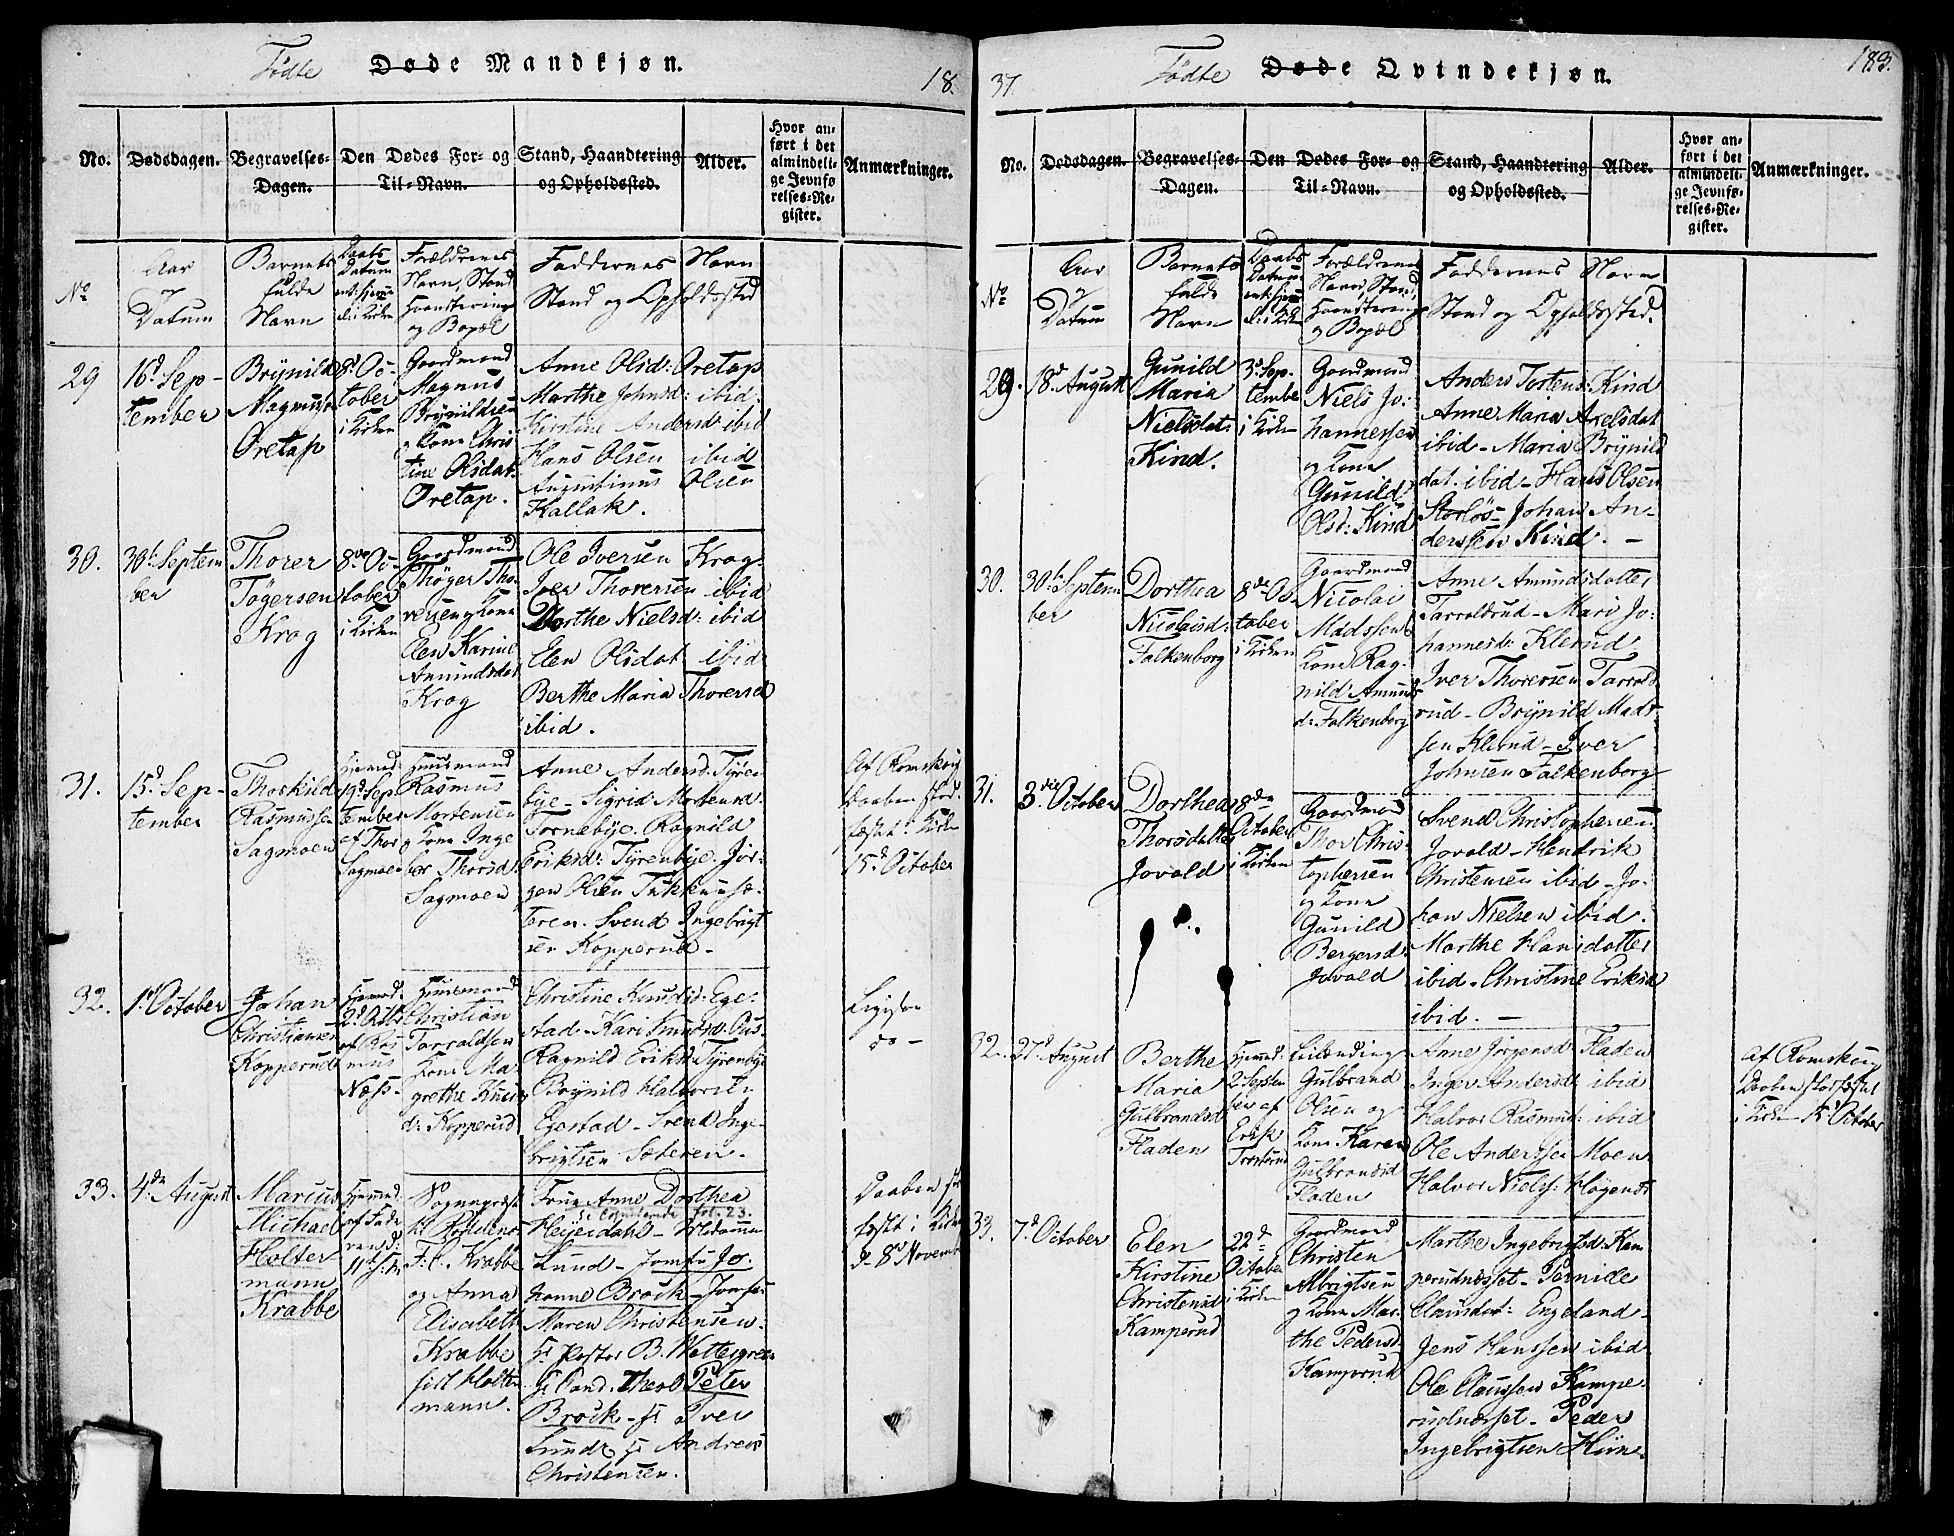 Fødte Døde Mandkjøn.
18.
No.
Dødsdagen.
Begravelses-
Dagen.
Den Dødes For- og
Til-Navn.
Stand, Haandtering
og Opholdssted.
Alder.
Hvor an-
ført i det
almindeli-
ge Jevnfø-
relses-Re-
gister.
Anmærkninger.
No
Aar
og
Datum
Barnets
fulde
Navn
Daabs
Datum
Forældrenes
Navn, Stand
Haandtering
og Bopæl
Faddernes Navn
Stand og Opholdssted
29
16d Sep-
tember
Brynild
Magnussen
Øretap
8d Oc-
tober
i Kirken
Gaardmand
Magnus
Brynildsen
og Kone Chris
tine Olsdat:
Øretap.
Anne Olsd: Øretap
Marthe Johnsd: ibid.
Kirstine Andersd: ibid
Hans Olsen ibid
Augustinus Olsen
Kallak.
30.
30te Septem
ber
Thorer
Tøgersen
Krog
8de Oc-
tober
i Kirken
Gaardmand
Thøger Tho-
resen og Kone
Elen Karine
Amundsdat
Krog
Ole Iversen Krog.
Iver Thorersen ibid
Dorthe Nielsd: ibid
Elen Olsdat ibid
Berthe Maria Thorersd
ibid.
31.
15d Sep-
tember
Thorkild
Rasmussen
Sagmoen
Hjemed:
19d Sep
tember
af Thor
Sagmoen
Huusmand
Rasmus
Mortensen
og Kone Inge
bor Thorsd:
Sagmoen
Anne Andersd: Tyre-
bye- Sigrid Mortensd:
Tornebye. Ragnild
Eriksd: Tyrenbye. Jør-
gen Olsen Tukkensæ-
teren. Svend Ingebrigt
sen Kopperud-
Af Romskoug
Daaben stad-
fæstet i Kirken
15d October
32.
1d October
Johan
Christiansen
Kopperud
Hjemed:
2d Octb:
af Ras
mus
Næss-
Huusmand
Christian
Torvaldsen
Kone Ma
grethe Knud
d: Kopperud
Christine Knudsd: Ege-
stad- Kari Knudsd: Aas
Ragnild Eriksd: Tyrenbye
Brynild Halvorsen
Egestad- Svend Inge-
brigtsen Sæteren.
Ligesaa
33.
4de August
Marcus
Michael
Holter
mann
Krabbe
Hjemed:
af Fade
ren d:
Sognepræst
til Rødenes
F: C. Krabbe
og Anna
Elisabeth
Krabbe
fød Holter
mann.
Frue Anne Dorthea
fol. 23.
Heyerdahl- Madame
Lund- Jomfu Jo-
hanne Brock- Jomfu:
Maren Christensen.
Hr Pastor B. Wettergreen
Hr Cand. Theol Peter
Brock- Hr Iver
Lund, Hr Andreas
Christensen.
Daaben stad
fæstet i Kirken
d 8d Novemb

37. Fødte Døde Qvindekjøn.
183.
No.
Dødsdagen.
Begravelses-
Dagen.
Den Dødes For- og
Til-Navn.
Stand, Haandtering
og Opholdssted.
Alder.
Hvor an-
ført i det
almindeli-
ge Jevnfø-
relses-Re-
gister.
Anmærkninger.
No
Aar
og
Datum
Barnets
fulde
Navn
Daabs
Datum
Forældrenes
Navn, Stand,
Haandtering
og Bopæl
Faddernes Navn
Stand og Opholdssted.
29.
18d August
Gunild
Maria
Nielsdat:
Kind.
3d Sep-
tember
i Kirken
Gaardmand
Niels Jo-
hannessen
og Kone
Gunild
Olsd: Kind
Anders Tortens: Kind
Anne Maria Axelsdat
ibid- Maria Brynild
dat. ibid- Hans Olsen
Storløs- Johan An-
derssen Kind.
30.
30te Septem
ber
Dorthea
Nicolaisd:
Falkenborg
8de Oc-
tober
i Kirken
Gaardmand
Nicolai
Madssen
Kone Rag-
nild Amunds
d: Falkenborg
Anne Amundsdatter
Tarraldrud- Mari Jo-
hannesd: Klerud
Iver Thorersen Tarrald
rud- Brynild Mads-
sen Klerud- Iver
Johnsen Falkenborg
31.
3die October
Dorthea
Thorsdatter
Jovald
8de
October
i Kirken
Gaardmand
Thor Chris-
tophersen
og Kone
Gunild
Bergersd:
Jovald
Svend Christophersen
Jovald- Hendrik
Christensen ibid- Jo-
han Nielsen ibid.
Marthe Hansdatter
ibid- Christine Eriksd
ibid.
32.
27d August
Berthe
Maria
Gulbrandsd
Fladen
Hjemed:
2 Septem
ber af
Erik
Trosterud
Leilending
Gulbrand
Olsen og
Kone Karen
Gulbrandsd
Fladen
Anne Jørgensd: Fladen
Inger Andersd: ibid
Halvor Rasmus: ibid
Ole Anderssen Moen
Halvor Niels: Høgenes
Af Romskoug
Daaben stadfæstet
i Kirken 15d October
33.
7d October
Elen
Kirstine
Christensd
Kamperud
22de
October
i Kirken
Gaardmand
Christen
Albrigtsen
og Kone Mar-
the Pedersd.
Kamperud
Marthe Ingebrigtsd: Kam
perudnæsset- Pernille
Clausdat: Engeland
Jens Hanssen ibid
Ole Claussen Kampe-
rudnæsset- Peder
Ingebrigtsen Hiin-